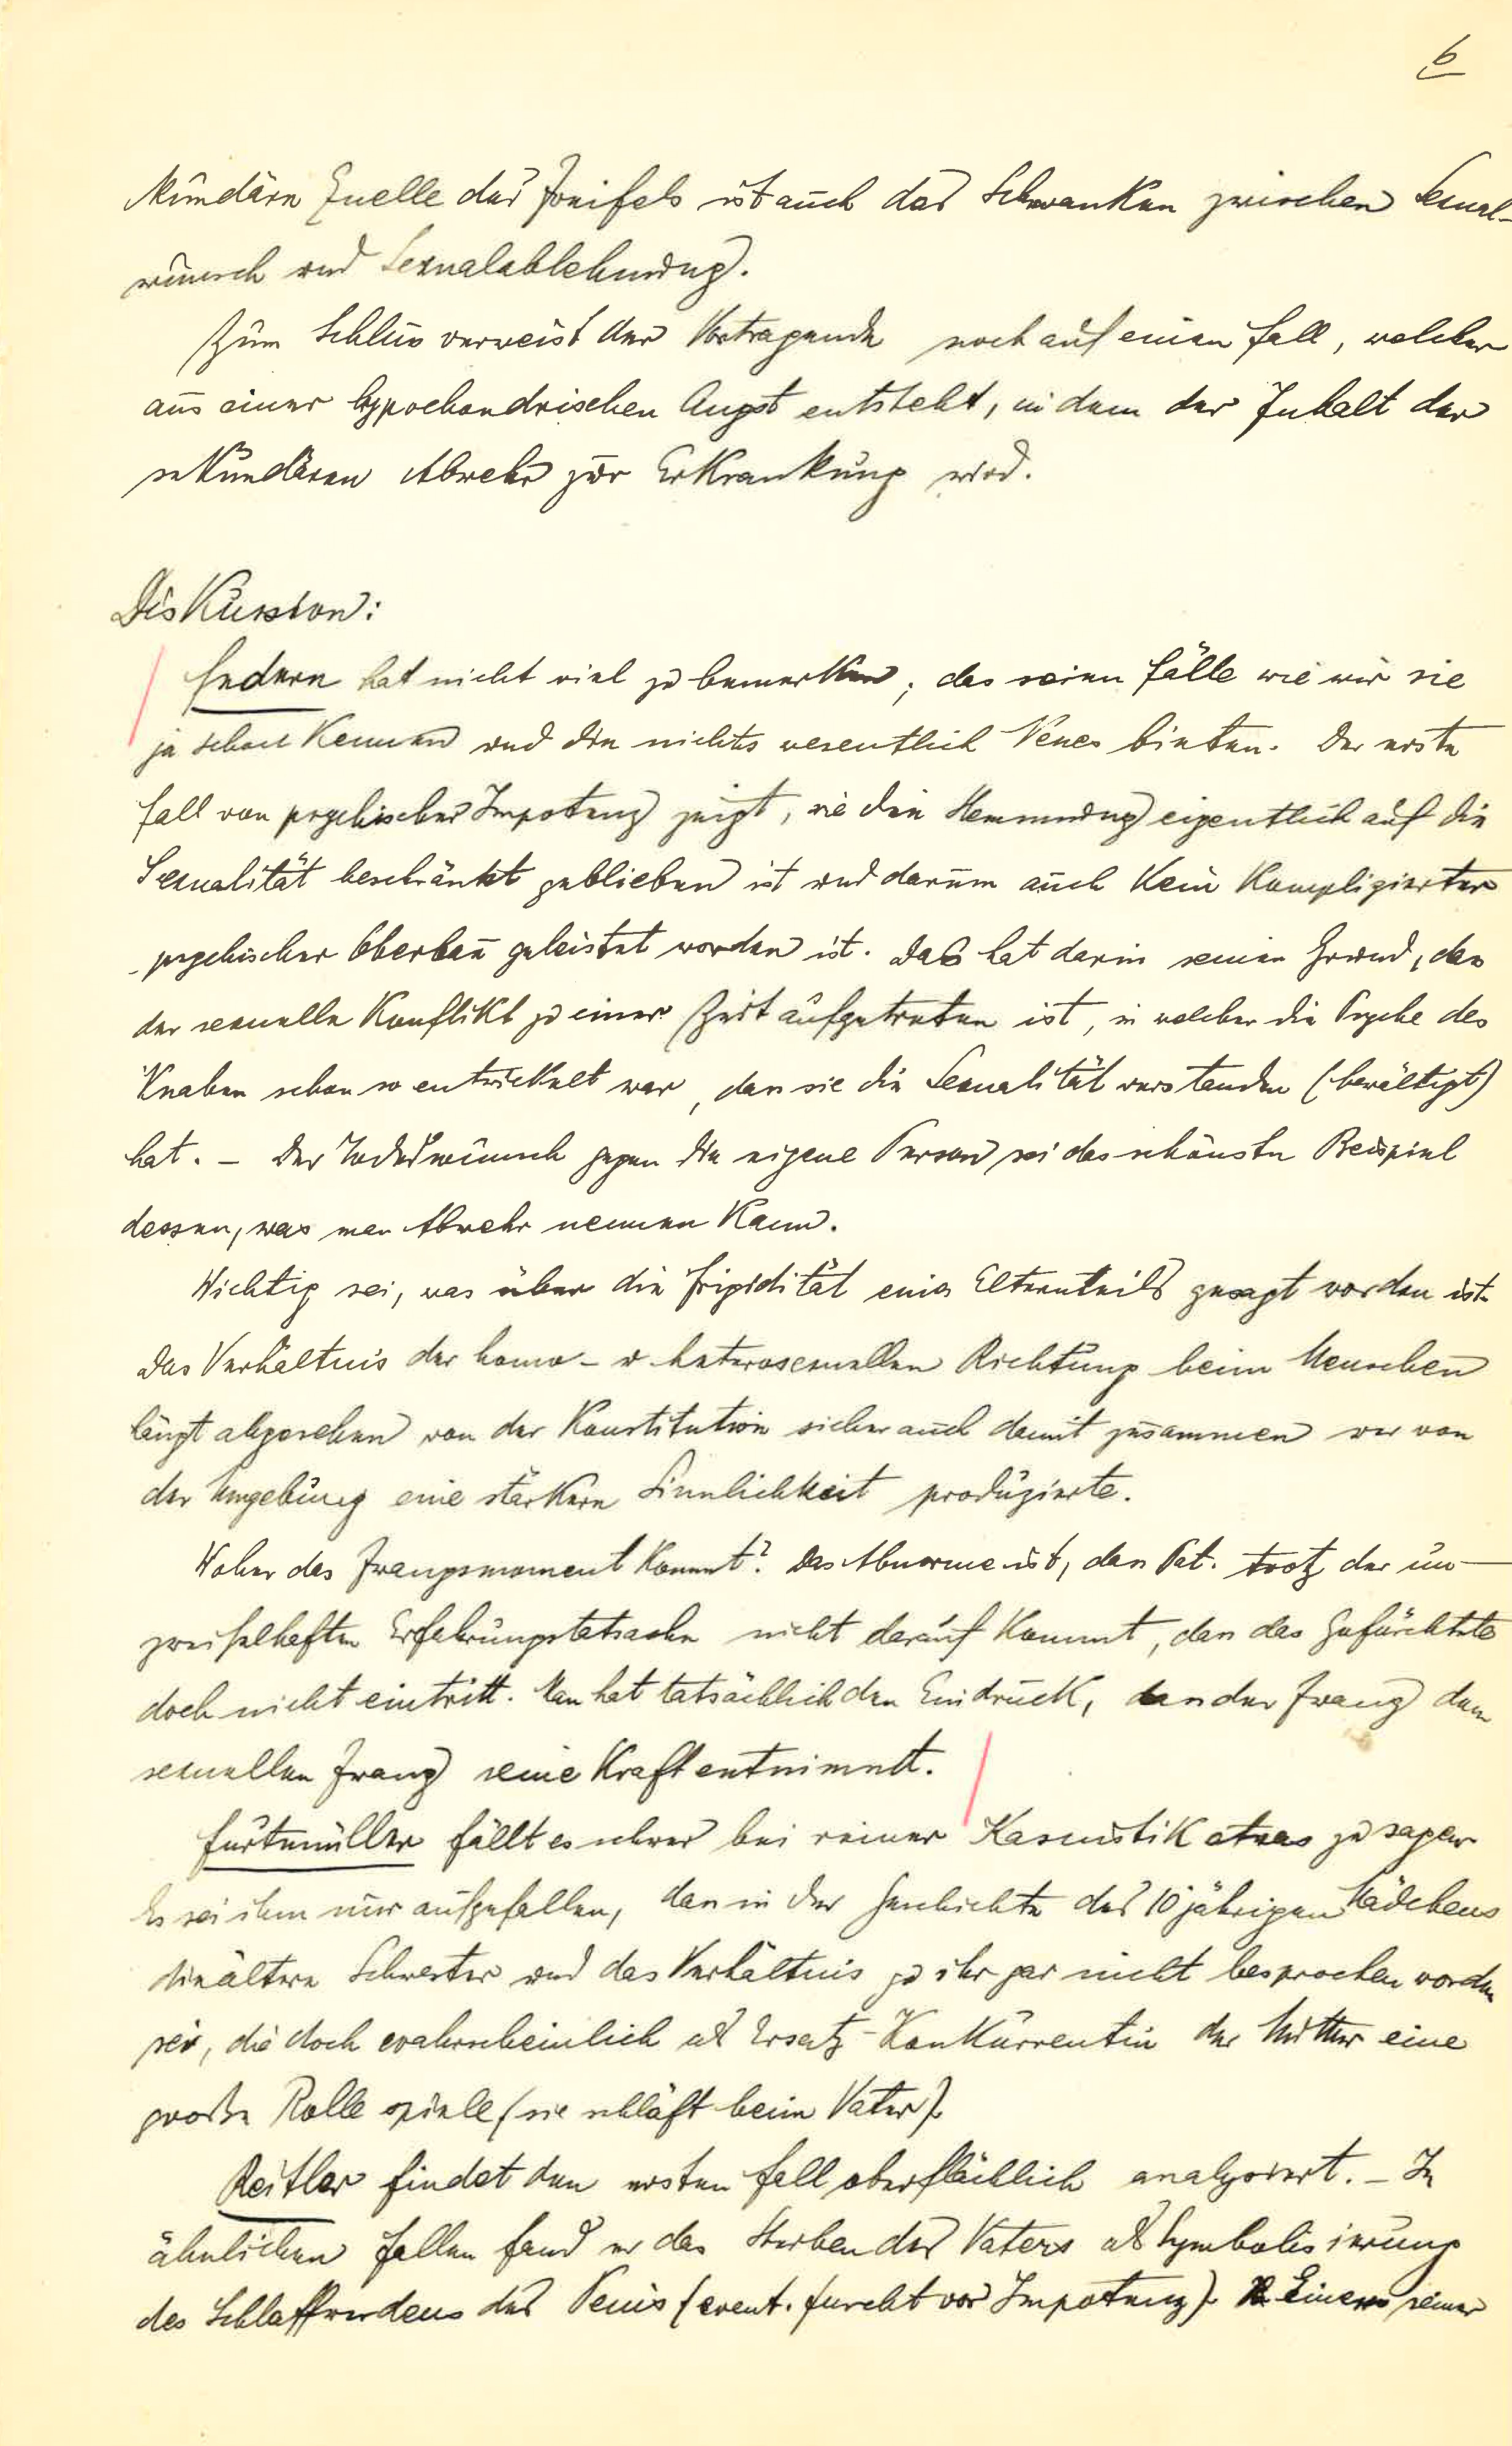 6
kundäre Quelle des Zweifels ist auch das Schwanken zwischen Sexual-
wunsch und Sexualablehnung.
Zum Schluss verweist der Vortragende noch auf einen Fall, welcher
aus einer hypochondrischen Angst entsteht, in dem der Inhalt der
sekundären Abwehr zur Erkrankung wird.
Diskussion:
Federn hat nicht viel zu bemerken; das seien Fälle wie wir sie
ja schon kennen und die nichts wesentlich Neues bieten. Der erste
Fall von psychischer Impotenz zeigt, wie die Hemmung eigentlich auf die
Sexualität beschränkt geblieben ist und darum auch kein komplizierter
psychischer Oberbau geleistet worden ist. Das hat darin seinen Grund, dass
der sexuelle Konflikt zu einer Zeit aufgetreten ist, in welcher die Psyche des
Knaben schon so entwickelt war, dass sie die Sexualität verstanden (bewältigt)
hat. – Der Todeswunsch gegen die eigene Person sei das schönste Beispiel
dessen, was man Abwehr nennen kann.
Wichtig sei, was über die Frigidität eines Elternteils gesagt worden ist.
Das Verhältnis der homo- u heterosexuellen Richtung beim Menschen
hängt abgesehen von der Konstitution sicher auch damit zusammen wer von
der Umgebung eine stärkere Sinnlichkeit produzierte.
Woher das Zwangsmoment kommt? Das Abnorme ist, dass Pat. trotz der un-
zweifelhaften Erfahrungstatsache nicht darauf kommt, dass das Gefürchtete
doch nicht eintritt. Man hat tatsächlich den Eindruck, dass der Zwang dem
sexuellen Zwang seine Kraft entnimmt.
Furtmüller fällt es schwer bei reiner Kasuistik etwas zu sagen
Es sei ihm nur aufgefallen, dass in der Geschichte des 10jährigen Mädchens
die ältere Schwester und das Verhältnis zu ihr gar nicht besprochen worden
sei, die doch wahrscheinlich als Ersatz-Konkurrentin der Mutter eine
große Rolle spiele (sie schläft beim Vater).
Reitler findet den ersten Fall oberflächlich analysiert. – In
ähnlichen Fällen fand er das Sterben des Vaters als Symbolisierung
des Schlaffwerdens des Penis (event. Furcht vor Impotenz). Einer seiner